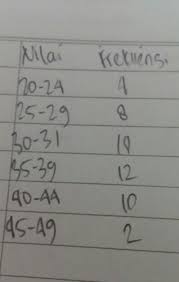 Nilai Frekuensi
20-24 4
25-29 8
30-31 18
35-39 12
40-44 10
45-49 2